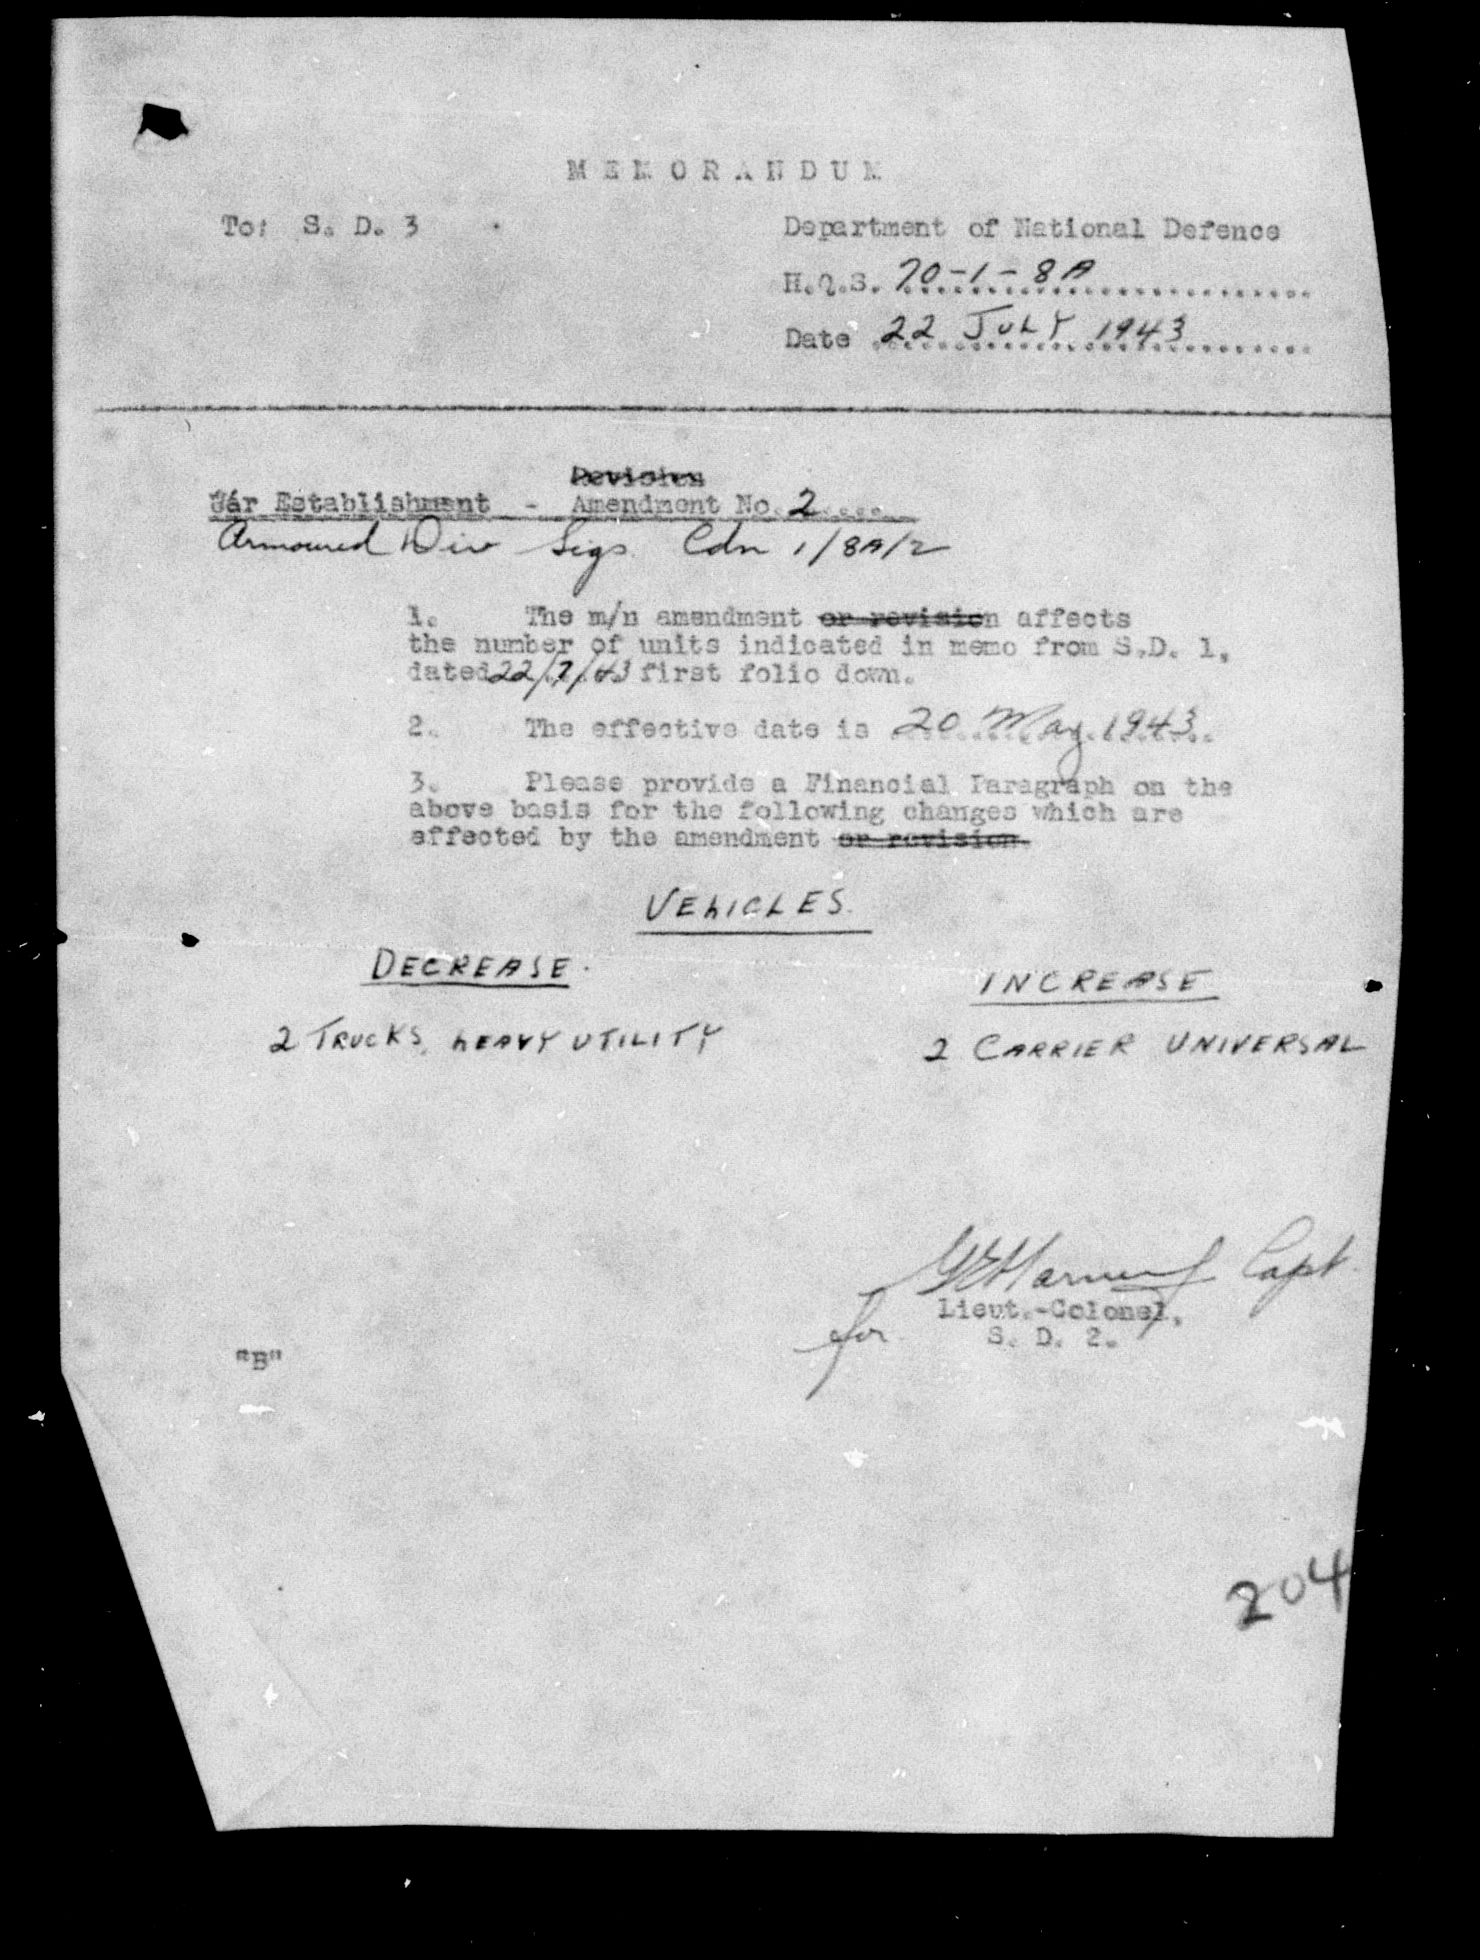 MEMORANDUM
To: S. D. 3
Department of National Defence
H.Q.S. 70-1-8A
Date 22 JULY 1943
Revision
War Establishment - Amendment No. 2
Armoured Div Sigs Cdn 1/8A/2
1. The m/n amendment or revision affects
the number of units indicated in memo from S.D. 1,
dated 22/7/43 first folio down.
2. The effective date is 20 May 1943
3. Please provide a Financial Paragraph on the
above basis for the following changes which are
effected by the amendment or revision.
VEHICLES.
DECREASE.
INCREASE
2 TRUCKS, HEAVY UTILITY
2 CARRIER UNIVERSAL
Capt.
Lieut.-Colonel,
for
S. D. 2.
"B"
204